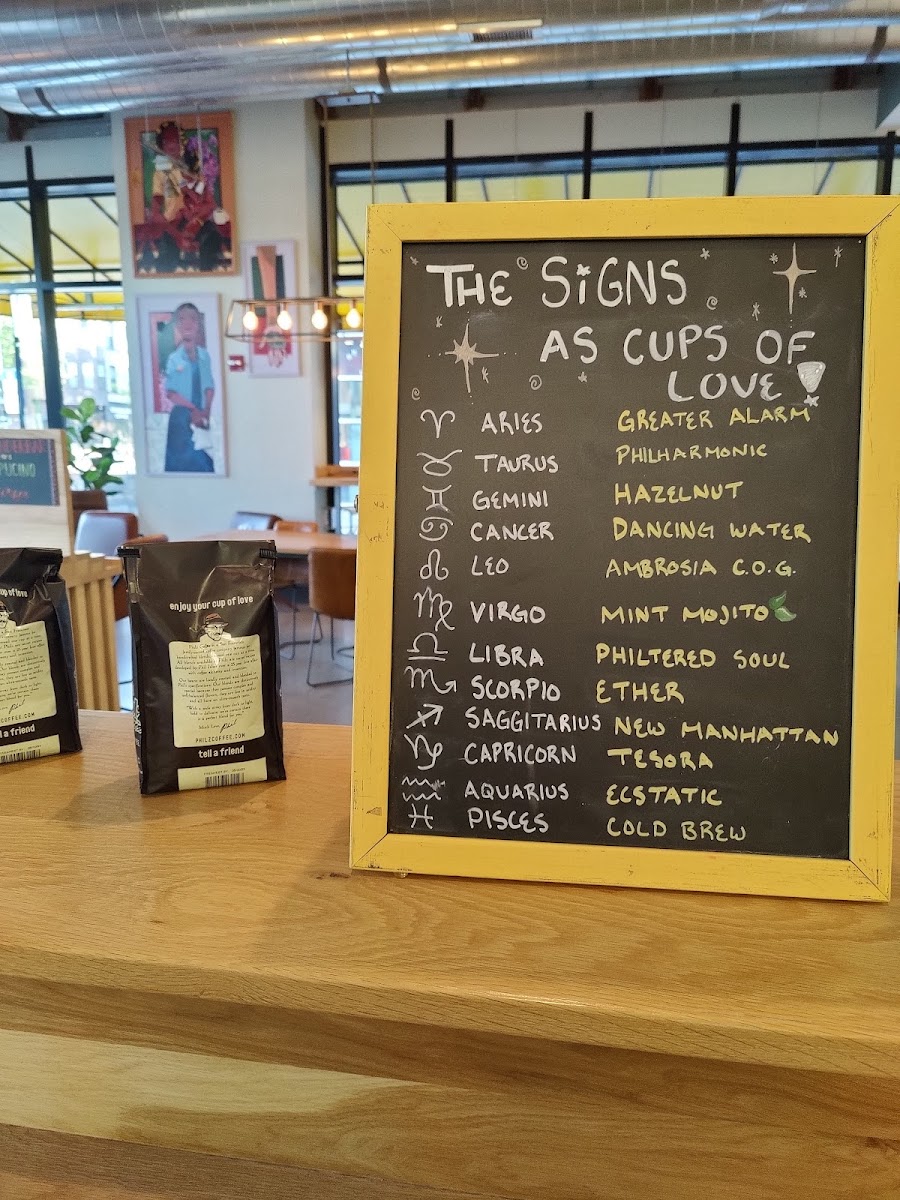 THE SiGNS
AS CUPS OF
LOVE
ARIES GREATER ALARM
TAURUS PHILHARMONIC
GEMINI HAZELNUT
CANCER DANCING WATER
LEO AMBROSIA C.O.G.
VIRGO MINT MOJITO
LIBRA PHILTERED SOUL
SCORPIO ETHER
SAGGITARIUS NEW MANHATTAN
CAPRICORN TESORA
AQUARIUS ECSTATIC
PISCES COLD BREW
enjoy your cup of love
Phil
PHILZCOFFEE.COM
tell a friend
cup of love
COFFEE.COM
tell a friend
PUCINO